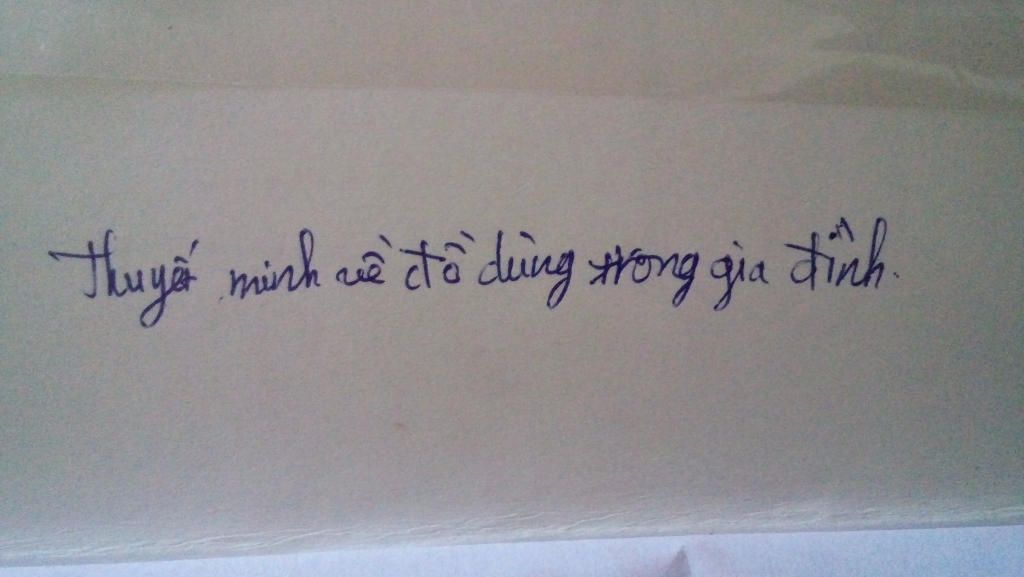 Thuyết minh về đồ dùng trong gia đình.